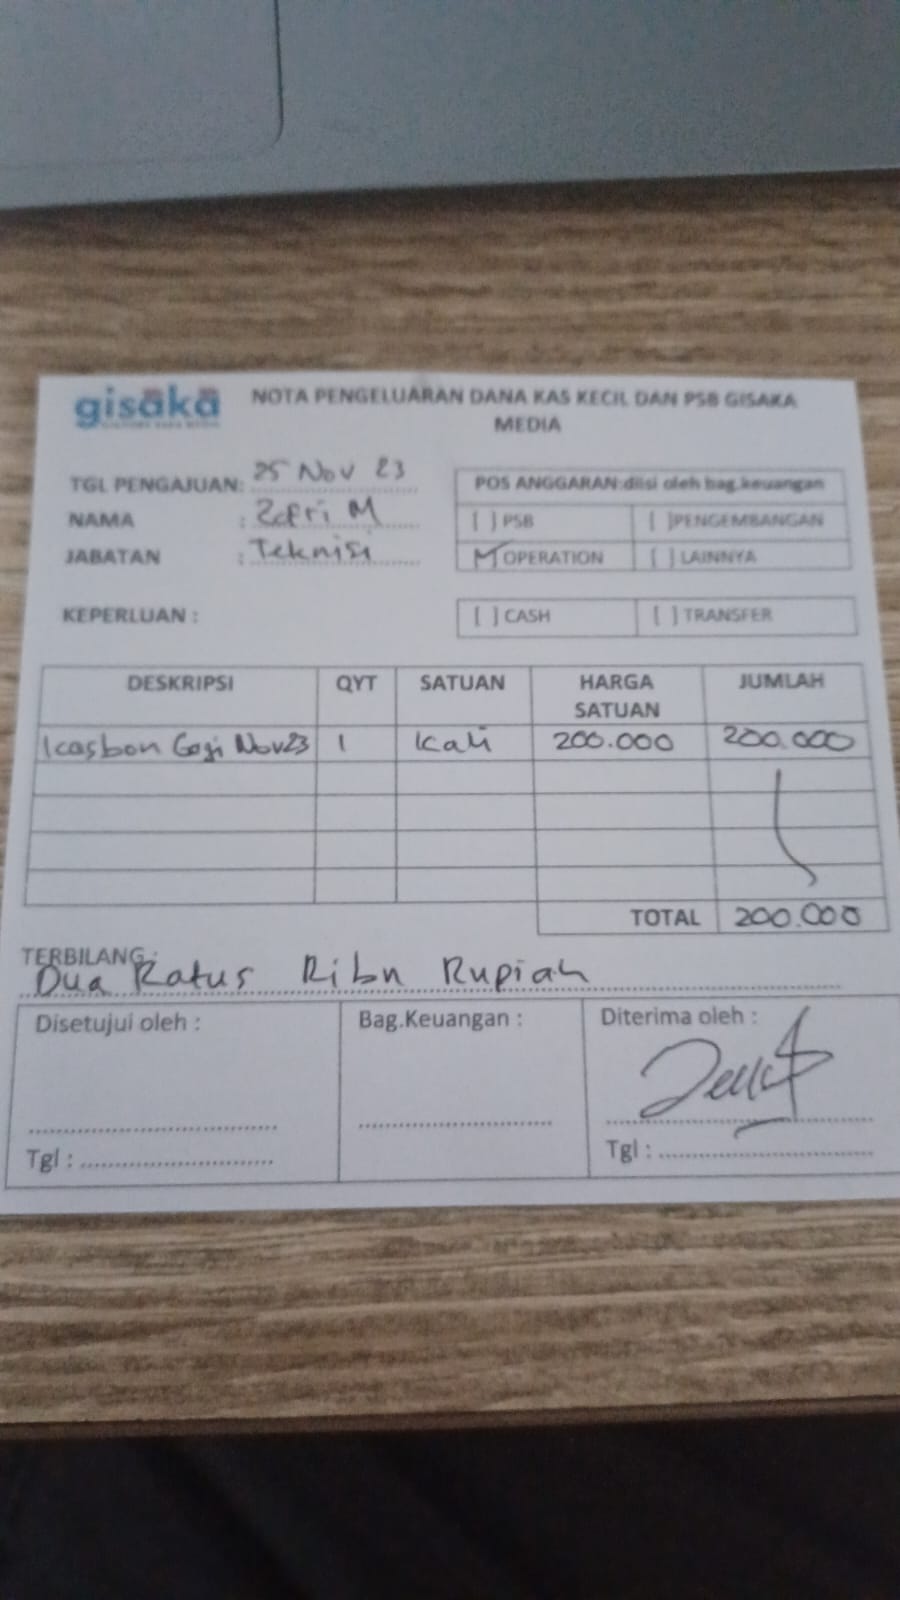 gisaka
NOTA PENGELUARAN DANA KAS KECIL DAN PSB GISAKA
MEDIA
TGL PENGAJUAN: 25 Nov 23
NAMA : Zefri M
JABATAN : Teknisi
POS ANGGARAN:diisi oleh bag.keuangan
[ ] PSB [ ]PENGEMBANGAN
[✓] OPERATION [ ] LAINNYA
KEPERLUAN : [ ] CASH [ ] TRANSFER
DESKRIPSI QYT SATUAN HARGA SATUAN JUMLAH
Kasbon Gaji Nov23 1 Kali 200.000 200.000
TOTAL 200.000
TERBILANG :
Dua Ratus Ribu Rupiah
Disetujui oleh : Bag.Keuangan : Diterima oleh :
Tgl : Tgl :